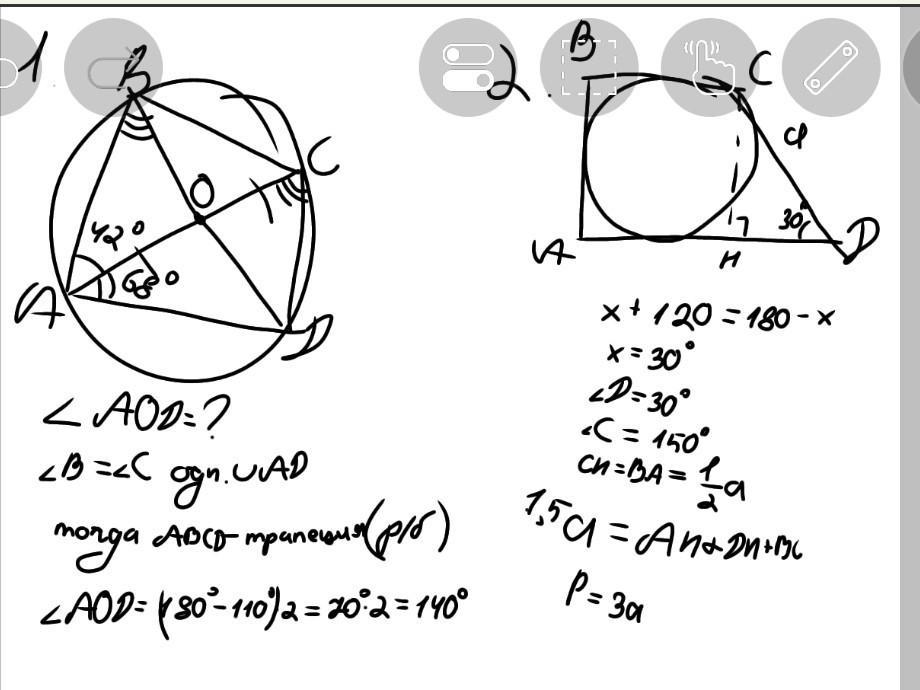 1.
B
C
O
42°
68°
A
D
∠AOD=?
∠B=∠C одн. ∪AD
тогда ABCD-трапеция(р/б)
∠AOD=(180°-110°)2=70°·2=140°
2.
B
C
a
30°
A
H
D
x+120=180-x
x=30°
∠D=30°
∠C=150°
CH=BA=1/2a
1,5a=AH+DH+BC
P=3a